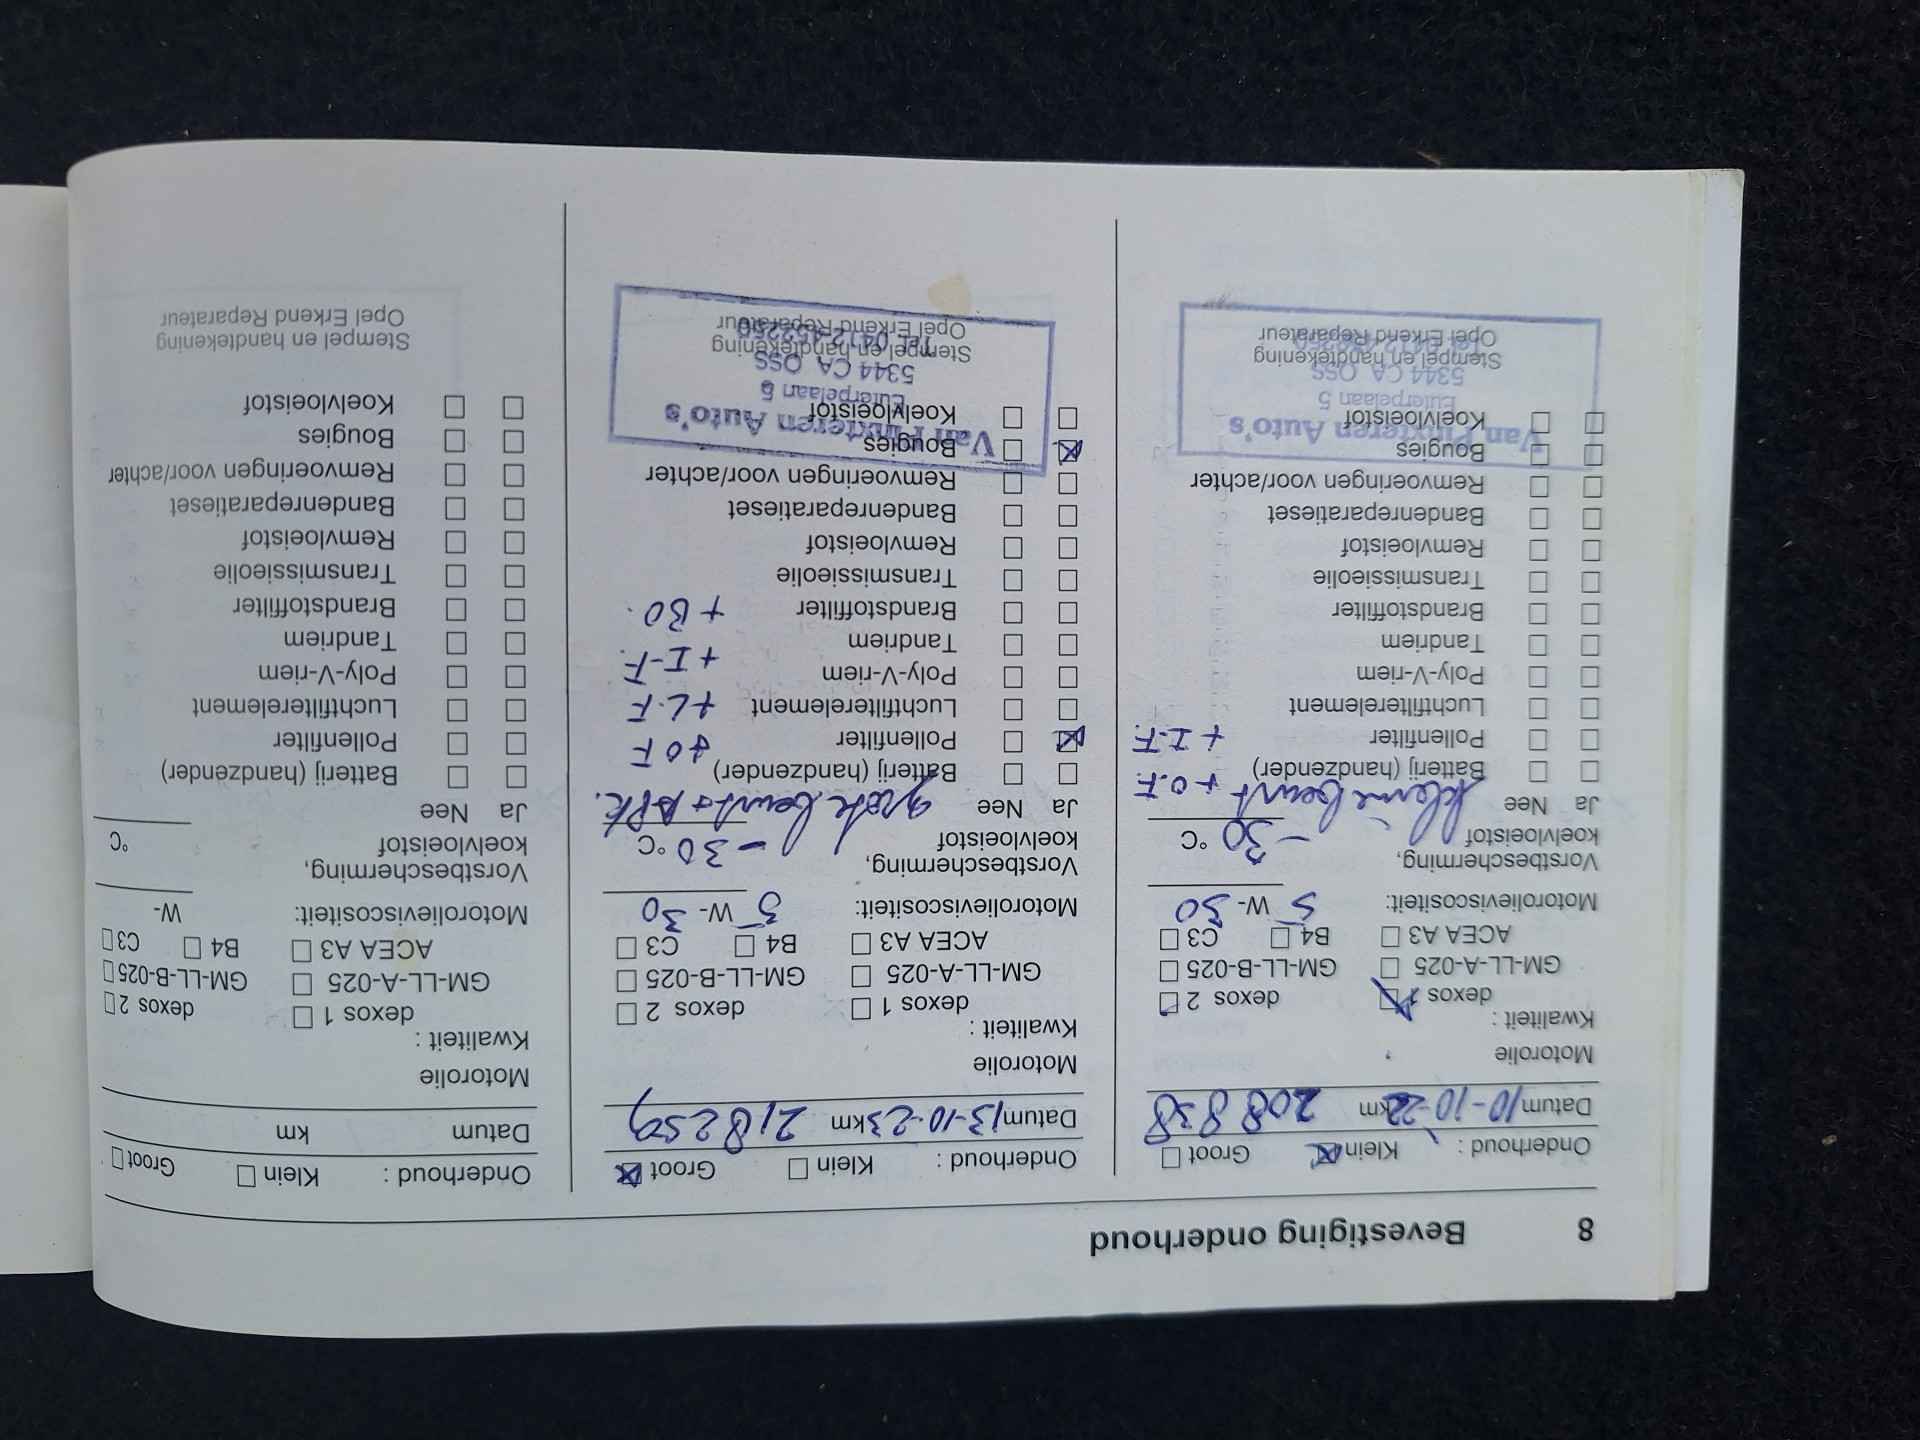 8 Bevestiging onderhoud
Onderhoud : Klein ☒ Groot ☐
Datum 10-10-22 km 208838
Motorolie
Kwaliteit :
dexos 1 ☒ dexos 2 ☐
GM-LL-A-025 ☐ GM-LL-B-025 ☐
ACEA A3 ☐ B4 ☐ C3 ☐
Motorolieviscositeit: 5 W- 30
Vorstbescherming,
koelvloeistof -30 °C
Ja Nee kleine beurt
☐ ☐ Batterij (handzender) + O.F.
☐ ☐ Pollenfilter + I.F.
☐ ☐ Luchtfilterelement
☐ ☐ Poly-V-riem
☐ ☐ Tandriem
☐ ☐ Brandstoffilter
☐ ☐ Transmissieolie
☐ ☐ Remvloeistof
☐ ☐ Bandenreparatieset
☐ ☐ Remvoeringen voor/achter
☐ ☐ Bougies
Van Pinxteren Auto's
☐ ☐ Koelvloeistof
Euterpelaan 5
5344 CA OSS
Stempel en handtekening
Opel Erkend Reparateur
Onderhoud : Klein ☐ Groot ☒
Datum 13-10-23 km 218259
Motorolie
Kwaliteit :
dexos 1 ☐ dexos 2 ☐
GM-LL-A-025 ☐ GM-LL-B-025 ☐
ACEA A3 ☐ B4 ☐ C3 ☐
Motorolieviscositeit: 5 W- 30
Vorstbescherming,
koelvloeistof -30 °C
Ja Nee grote beurt + APK.
☐ ☐ Batterij (handzender)
☒ ☐ Pollenfilter + O F
☐ ☐ Luchtfilterelement + L.F
☐ ☐ Poly-V-riem + I-F.
☐ ☐ Tandriem
☐ ☐ Brandstoffilter + BO.
☐ ☐ Transmissieolie
☐ ☐ Remvloeistof
☐ ☐ Bandenreparatieset
☐ ☐ Remvoeringen voor/achter
☒ ☐ Bougies
Van Pinxteren Auto's
☐ ☐ Koelvloeistof
Euterpelaan 5
5344 CA OSS
Stempel en handtekening
Opel Erkend Reparateur
Onderhoud : Klein ☐ Groot ☐
Datum km
Motorolie
Kwaliteit :
dexos 1 ☐ dexos 2 ☐
GM-LL-A-025 ☐ GM-LL-B-025 ☐
ACEA A3 ☐ B4 ☐ C3 ☐
Motorolieviscositeit: W-
Vorstbescherming,
koelvloeistof °C
Ja Nee
☐ ☐ Batterij (handzender)
☐ ☐ Pollenfilter
☐ ☐ Luchtfilterelement
☐ ☐ Poly-V-riem
☐ ☐ Tandriem
☐ ☐ Brandstoffilter
☐ ☐ Transmissieolie
☐ ☐ Remvloeistof
☐ ☐ Bandenreparatieset
☐ ☐ Remvoeringen voor/achter
☐ ☐ Bougies
☐ ☐ Koelvloeistof
Stempel en handtekening
Opel Erkend Reparateur